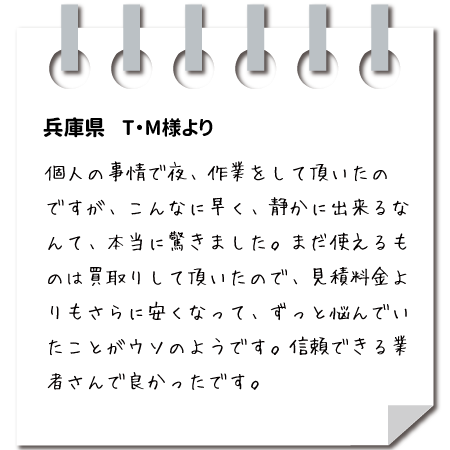 兵庫県　T・M様より
個人の事情で夜、作業をして頂いたの
ですが、こんなに早く、静かに出来るな
んて、本当に驚きました。まだ使えるも
のは買取りして頂いたので、見積料金よ
りもさらに安くなって、ずっと悩んでい
たことがウソのようです。信頼できる業
者さんで良かったです。